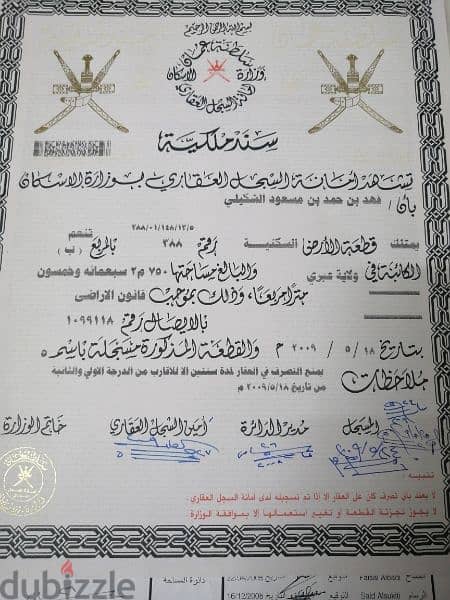 بسم الله الرحمن الرحيم
سلطنة عمان
وزارة الإسكان
أمانة السجل العقاري
سند ملكية
تشهد أمانة السجل العقاري بوزارة الإسكان
بأن / فهد بن حمد بن مسعود الشكيلي
٢٨٨/٠١/١٤٨/١٣/٥
يمتلك قطعة الأرض السكنية رقم ٣٨٨ تنعم بالمربع (ب)
الكائنة في ولاية عبري والبالغ مساحتها ٧٥٠ م٢ سبعمائه وخمسون
مترا مربعا، وذلك بموجب قانون الاراضى
بالإيصال رقم ١٠٩٩١١٨
بتاريخ ١٨ / ٥ / ٢٠٠٩ م والقطعة المذكورة مسجلة باسمه
ملاحظات يمنع التصرف في العقار لمدة سنتين الا للاقارب من الدرجة الاولي والثانية
من تاريخ ٢٠٠٩/٥/١٨م
المسجل مدير الدائرة أمين السجل العقاري خاتم الوزارة
تنبيه :
لا يعتد بأي تصرف كان على العقار إلا اذا تم تسجيله لدى امانة السجل العقاري .
لا يجوز تجزئة القطعة أو تغيير استعمالها إلا بموافقة الوزارة
Faisal دائرة المساحة
Said 16/12/2008
dubizzle